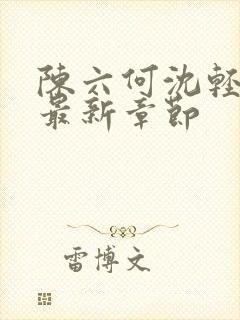 陳六何沈輕
最新章節
雷博文